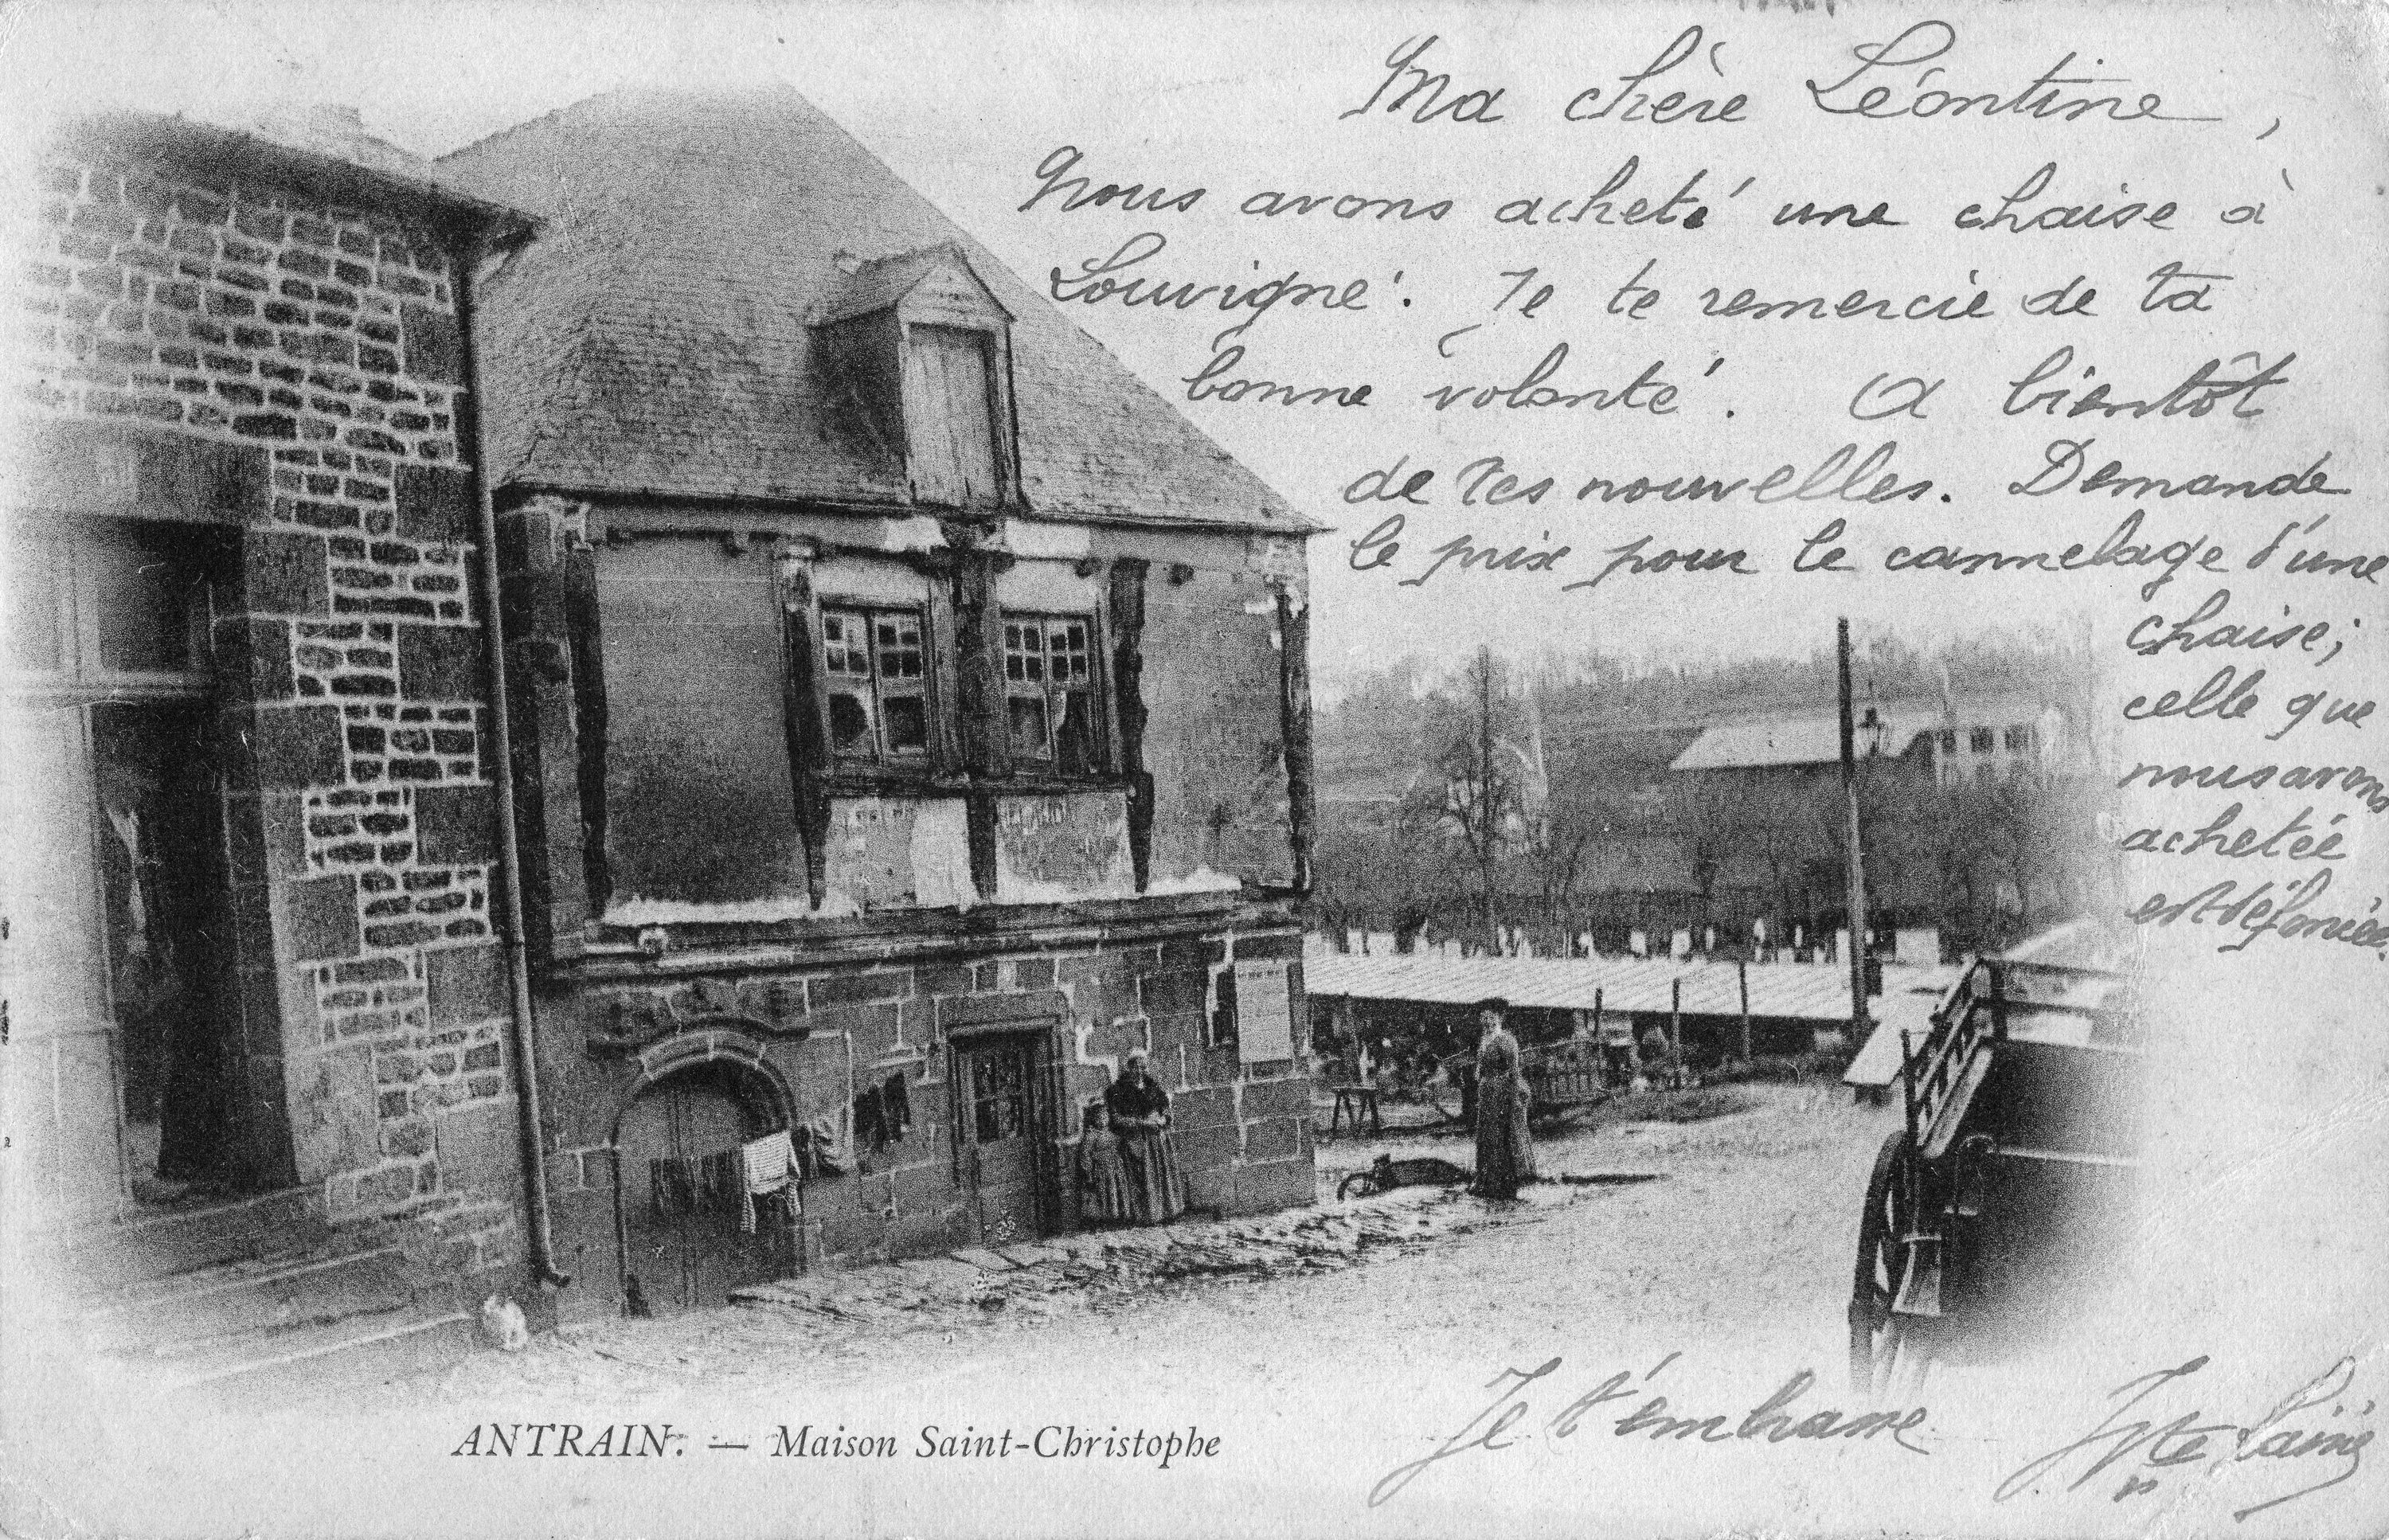 Ma chère Léontine,
Nous avons acheté une chaise à
Louvigné. Je te remercie de ta
bonne volonté. A bientôt
de tes nouvelles. Demande
le prix pour le cannelage d'une
chaise;
celle que
nous avons
achetée
est défoncée.
Je t'embrasse
ANTRAIN. — Maison Saint-Christophe